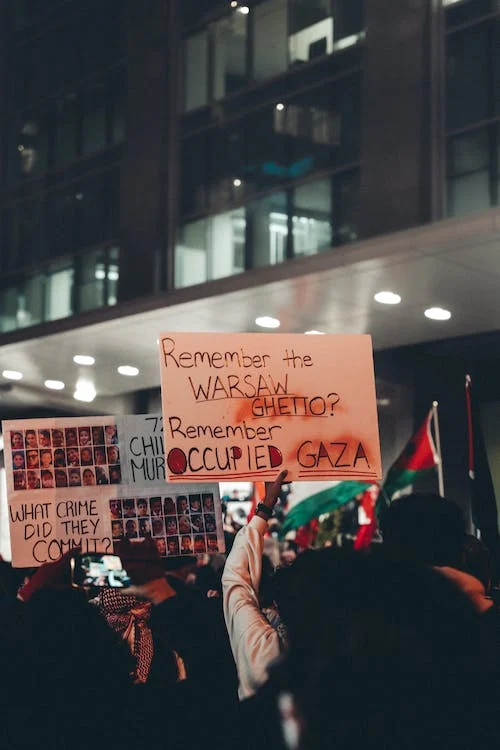 Remember the
WARSAW
GHETTO?
Remember
OCCUPIED GAZA
WHAT CRIME
DID THEY
COMMIT?